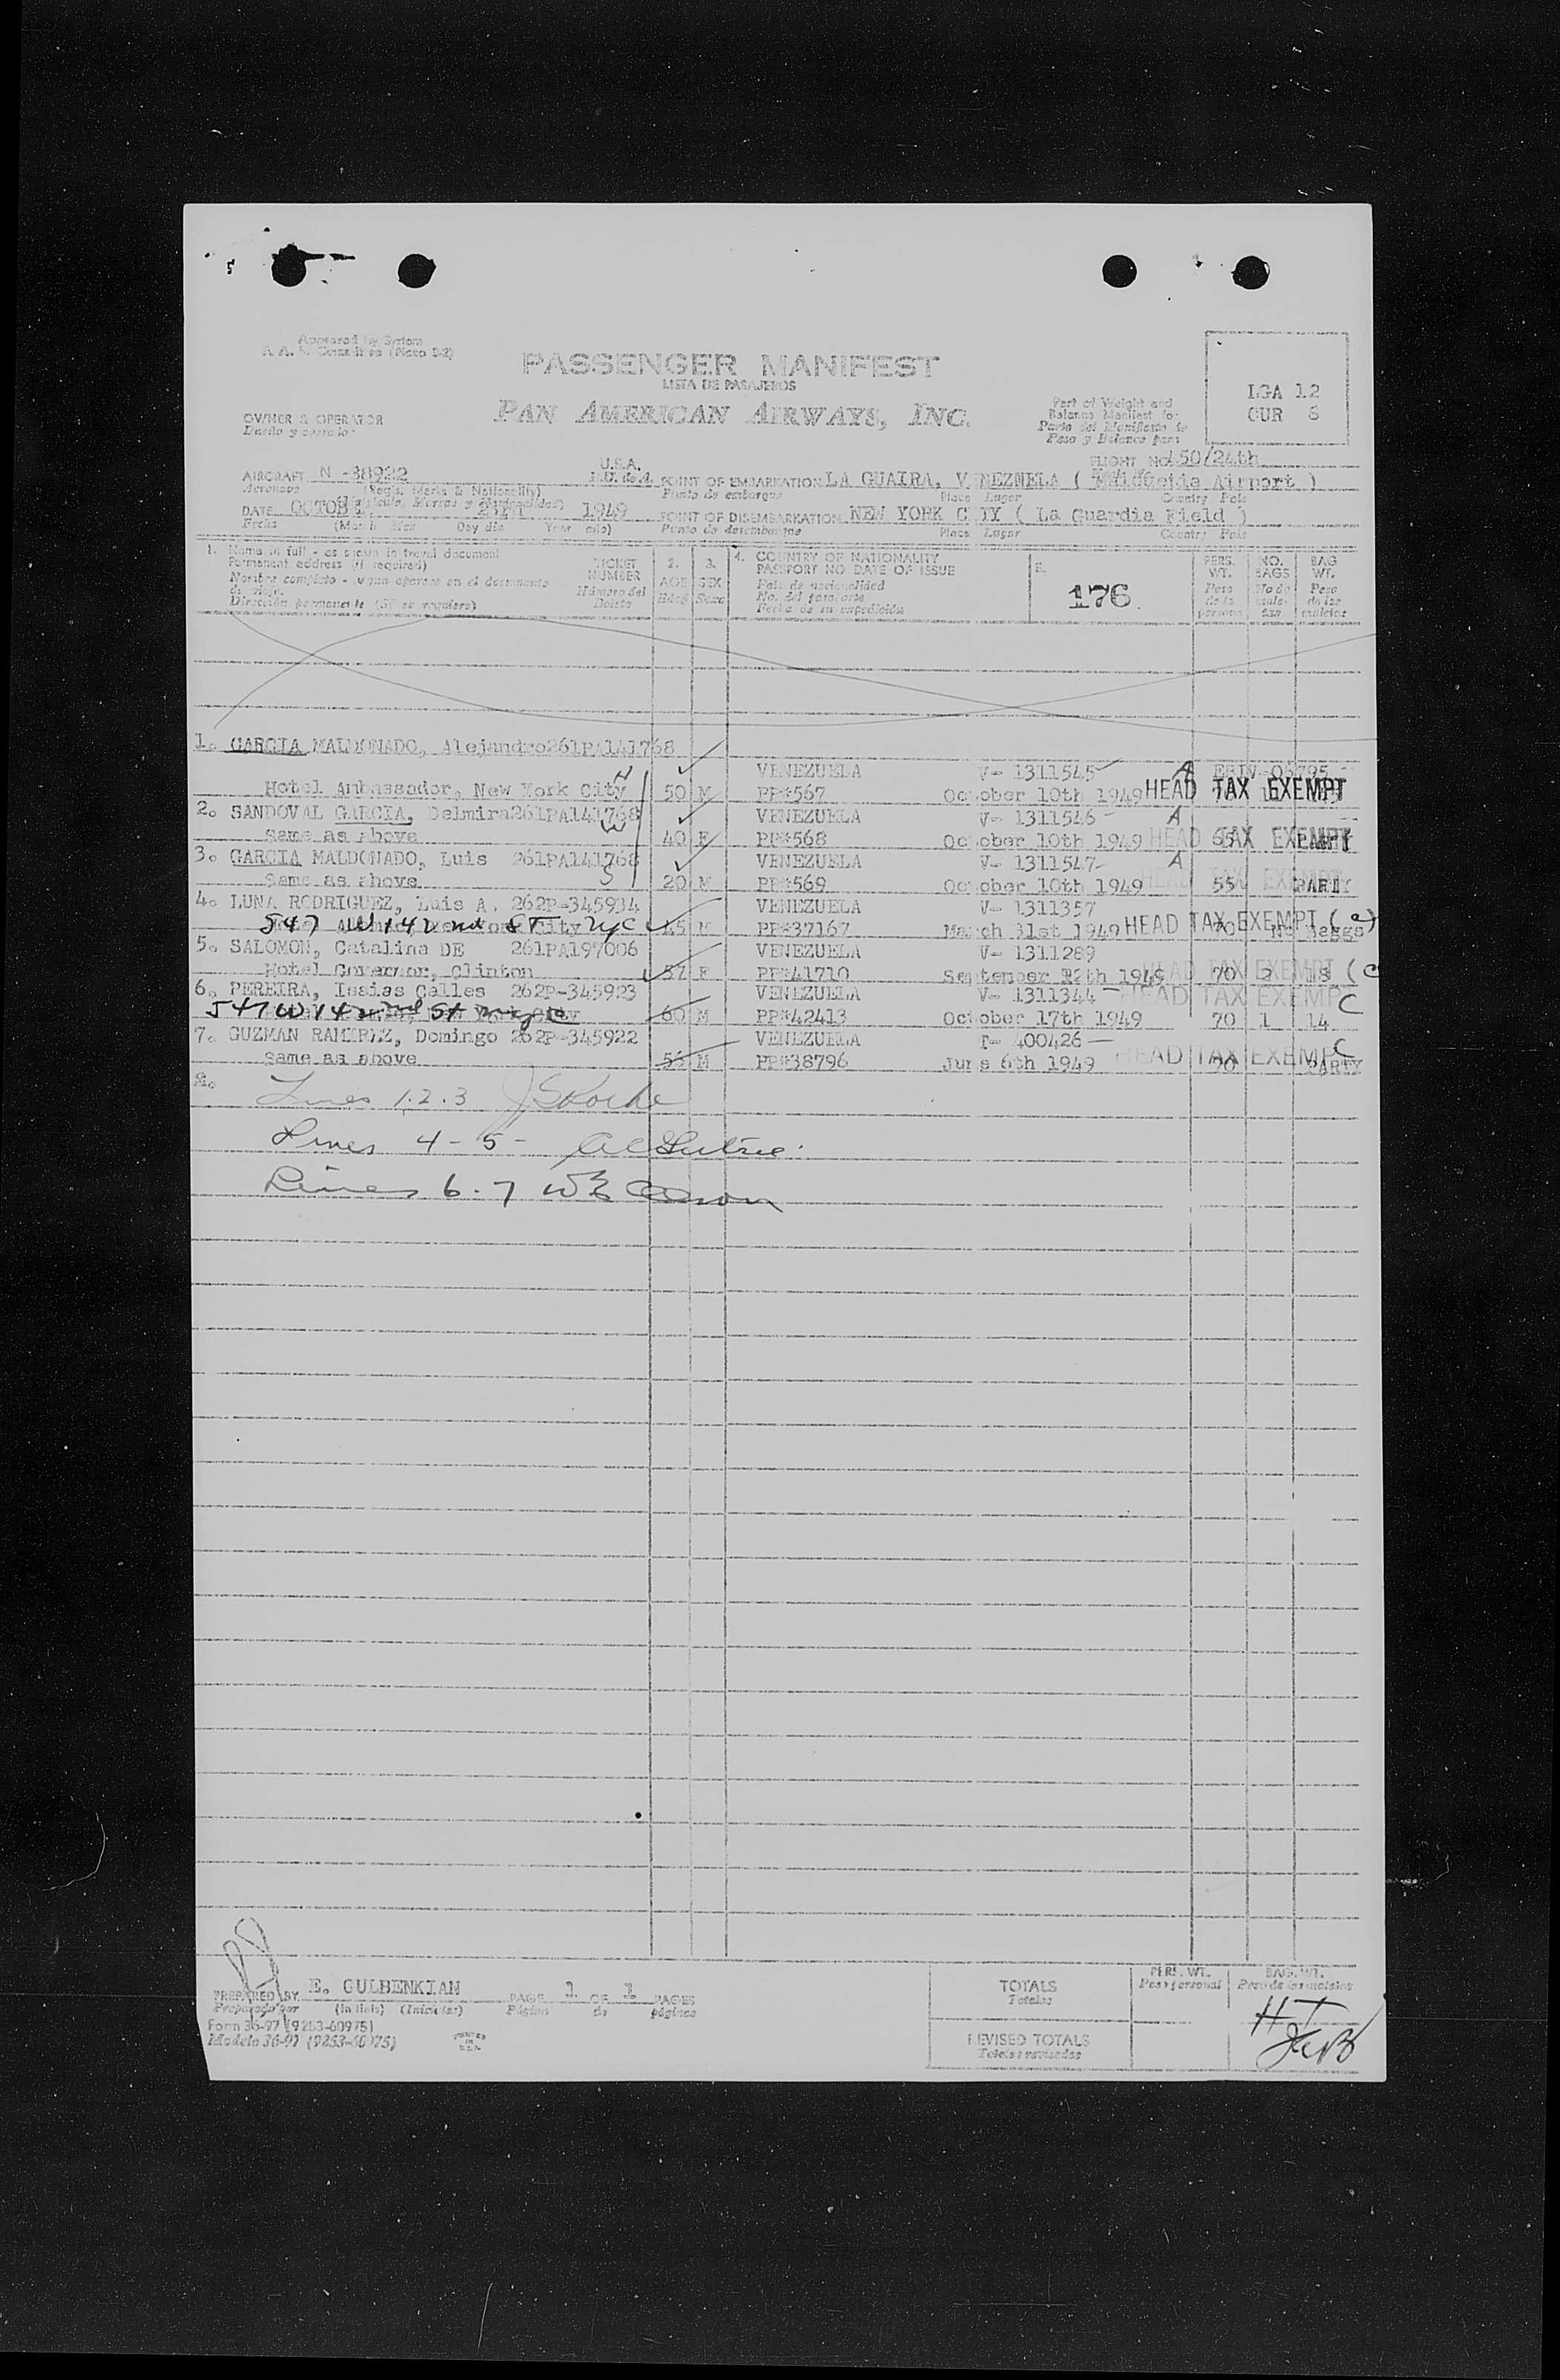 Approved by System
PASSENGER MANIFEST
LISTA DE PASAJEROS
PAN AMERICAN AIRWAYS, INC.
OWNER & OPERATOR
Dueño y operador
Part of Weight and
Balance Manifest for
Parte del Manifiesto de
Peso y Balance para
LGA 12
CUR 8
FLIGHT NO. 150/24th
AIRCRAFT N -38922 U.S.A.
Aeronave (Regis. Marks & Nationality) E.U. de A.
POINT OF EMBARKATION LA GUAIRA, VENEZNELA ( Maiquetia Airport )
Punto de embarque Place Lugar Country País
DATE OCTOBER 1949
Fecha (Month Mes Day día Year año)
POINT OF DISEMBARKATION NEW YORK CITY ( La Guardia Field )
Punto de desembarque Place Lugar Country País
1. Name in full - as shown in travel document
Permanent address (if required)
Nombre completo - según aparece en el documento
de viaje.
Dirección permanente (Si se requiere)
TICKET
NUMBER
Número del
Boleto
2.
AGE
Edad
3.
SEX
Sexo
4. COUNTRY OF NATIONALITY
PASSPORT NO DATE OF ISSUE
País de nacionalidad
No. del pasaporte
Fecha de su expedición
5.
176
PERS.
WT.
Peso
de la
persona
NO.
BAGS
No de
male-
tas
BAG
WT.
Peso
de las
maletas
1. GARCIA MALDONADO, Alejandro 261PA141768
VENEZUELA V- 1311545 A
H
Hotel Ambassador, New York City 50 M PP#567 October 10th 1949 HEAD TAX EXEMPT
2. SANDOVAL GARCIA, Delmira 261PA141768 VENEZUELA V- 1311546 A
W
Same as above 40 F PP#568 October 10th 1949 HEAD TAX EXEMPT
3. GARCIA MALDONADO, Luis 261PA141768 VENEZUELA V- 1311547 A
S
Same as above 20 M PP#569 October 10th 1949 HEAD TAX EXEMPT 55 PARTY
4. LUNA RODRIGUEZ, Luis A. 262P-345934 VENEZUELA V- 1311357
547 W 142nd ST NYC 45 M PP#37167 March 31st 1949 HEAD TAX EXEMPT (c) 70 No Baggs
5. SALOMON, Catalina DE 261PA197006 VENEZUELA V- 1311289
Hotel Governor, Clinton 57 F PP#41710 September 12th 1949 HEAD TAX EXEMPT (c 70 2 18
6. PEREIRA, Isaias Calles 262P-345923 VENEZUELA V- 1311344 HEAD TAX EXEMPT C
547 W 142nd St nyc 60 M PP#42413 October 17th 1949 70 1 14
7. GUZMAN RAMIREZ, Domingo 262P-345922 VENEZUELA P- 400426
Same as above 56 M PP#38796 June 6th 1949 HEAD TAX EXEMPT C 70 PARTY
8. Lines 1.2.3
Lines 4 - 5 -
Lines 6. 7
PREPARED BY E. GULBENKIAN
Preparado por (Initials) (Iniciales)
PAGE 1 OF 1 PAGES
Página de páginas
Form 36-97 (9253-60975)
Modelo 36-97 (9253-60975)
PRINTED
IN
U.S.A.
TOTALS
Totales
REVISED TOTALS
Totales revisados
PERS. WT.
Peso personal
BAG. WT.
Peso de las maletas
HT